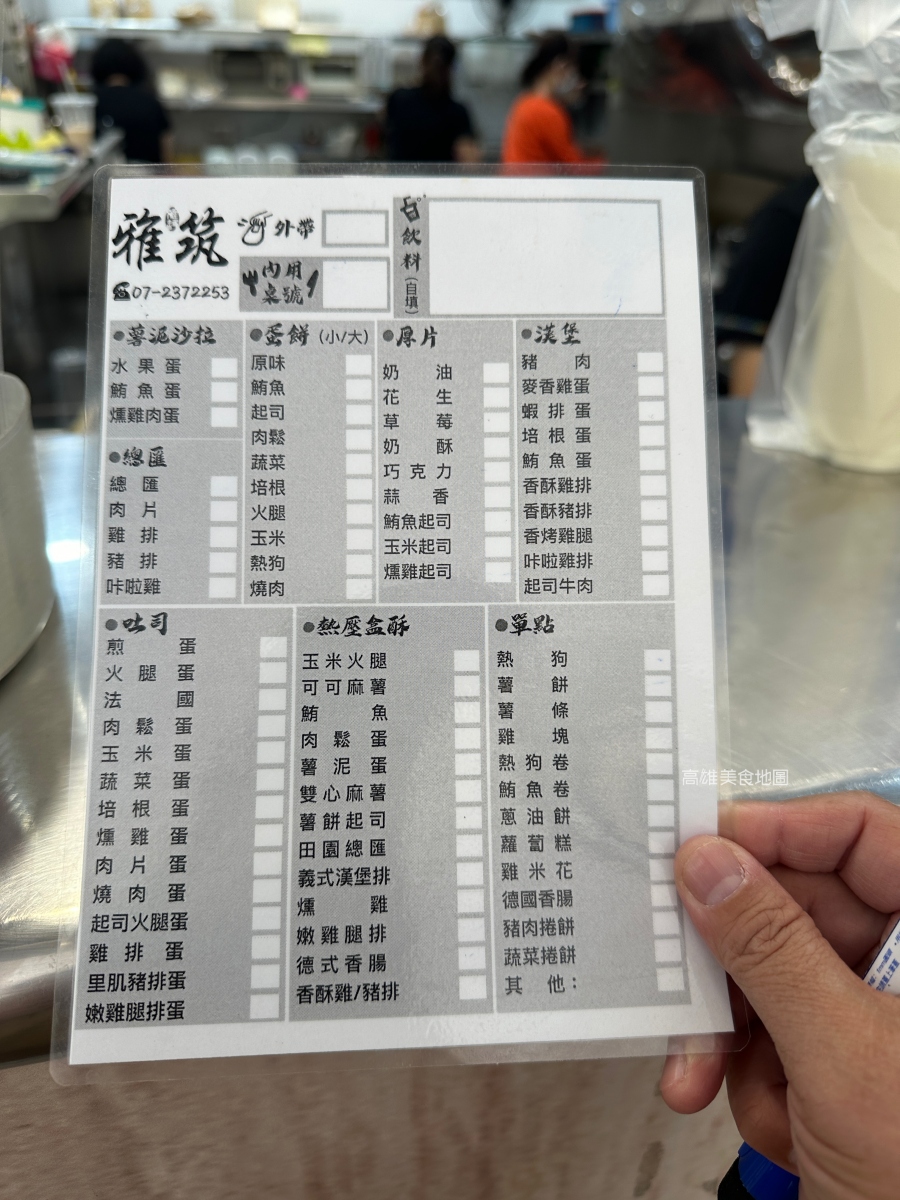 雅筑
外帶
內用
桌號
07-2372253
飲料(自填)
●薯泥沙拉
水果蛋
鮪魚蛋
燻雞肉蛋
●總匯
總匯
肉片
雞排
豬排
咔啦雞
●蛋餅(小/大)
原味
鮪魚
起司
肉鬆
蔬菜
培根
火腿
玉米
熱狗
燒肉
●厚片
奶油
花生
草莓
奶酥
巧克力
蒜香
鮪魚起司
玉米起司
燻雞起司
●漢堡
豬肉
麥香雞蛋
蝦排蛋
培根蛋
鮪魚蛋
香酥雞排
香酥豬排
香烤雞腿
咔啦雞排
起司牛肉
●吐司
煎蛋
火腿蛋
法國
肉鬆蛋
玉米蛋
蔬菜蛋
培根蛋
燻雞蛋
肉片蛋
燒肉蛋
起司火腿蛋
雞排蛋
里肌豬排蛋
嫩雞腿排蛋
●熱壓盒酥
玉米火腿
可可麻薯
鮪魚
肉鬆蛋
薯泥蛋
雙心麻薯
薯餅起司
田園總匯
義式漢堡排
燻雞
嫩雞腿排
德式香腸
香酥雞/豬排
●單點
熱狗
薯餅
薯條
雞塊
熱狗卷
鮪魚卷
蔥油餅
蘿蔔糕
雞米花
德國香腸
豬肉捲餅
蔬菜捲餅
其他：
高雄美食地圖